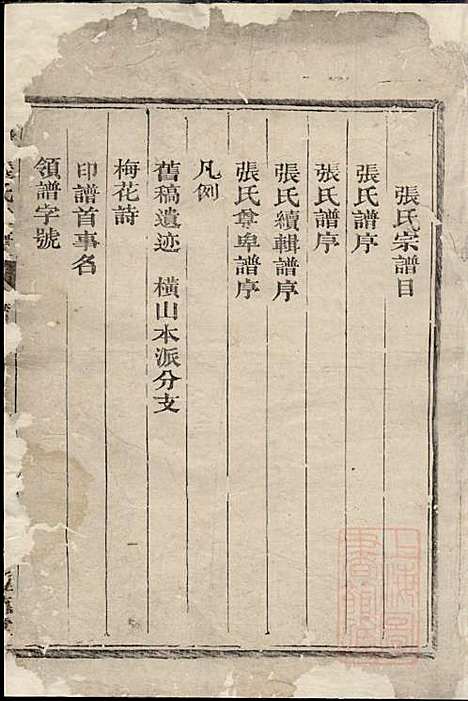 張氏宗譜目
張氏譜序
張氏譜序
張氏續輯譜序
張氏尊卑譜序
凡例
舊稿遺迹　橫山本派分支
梅花詩
印譜首事名
領譜字號